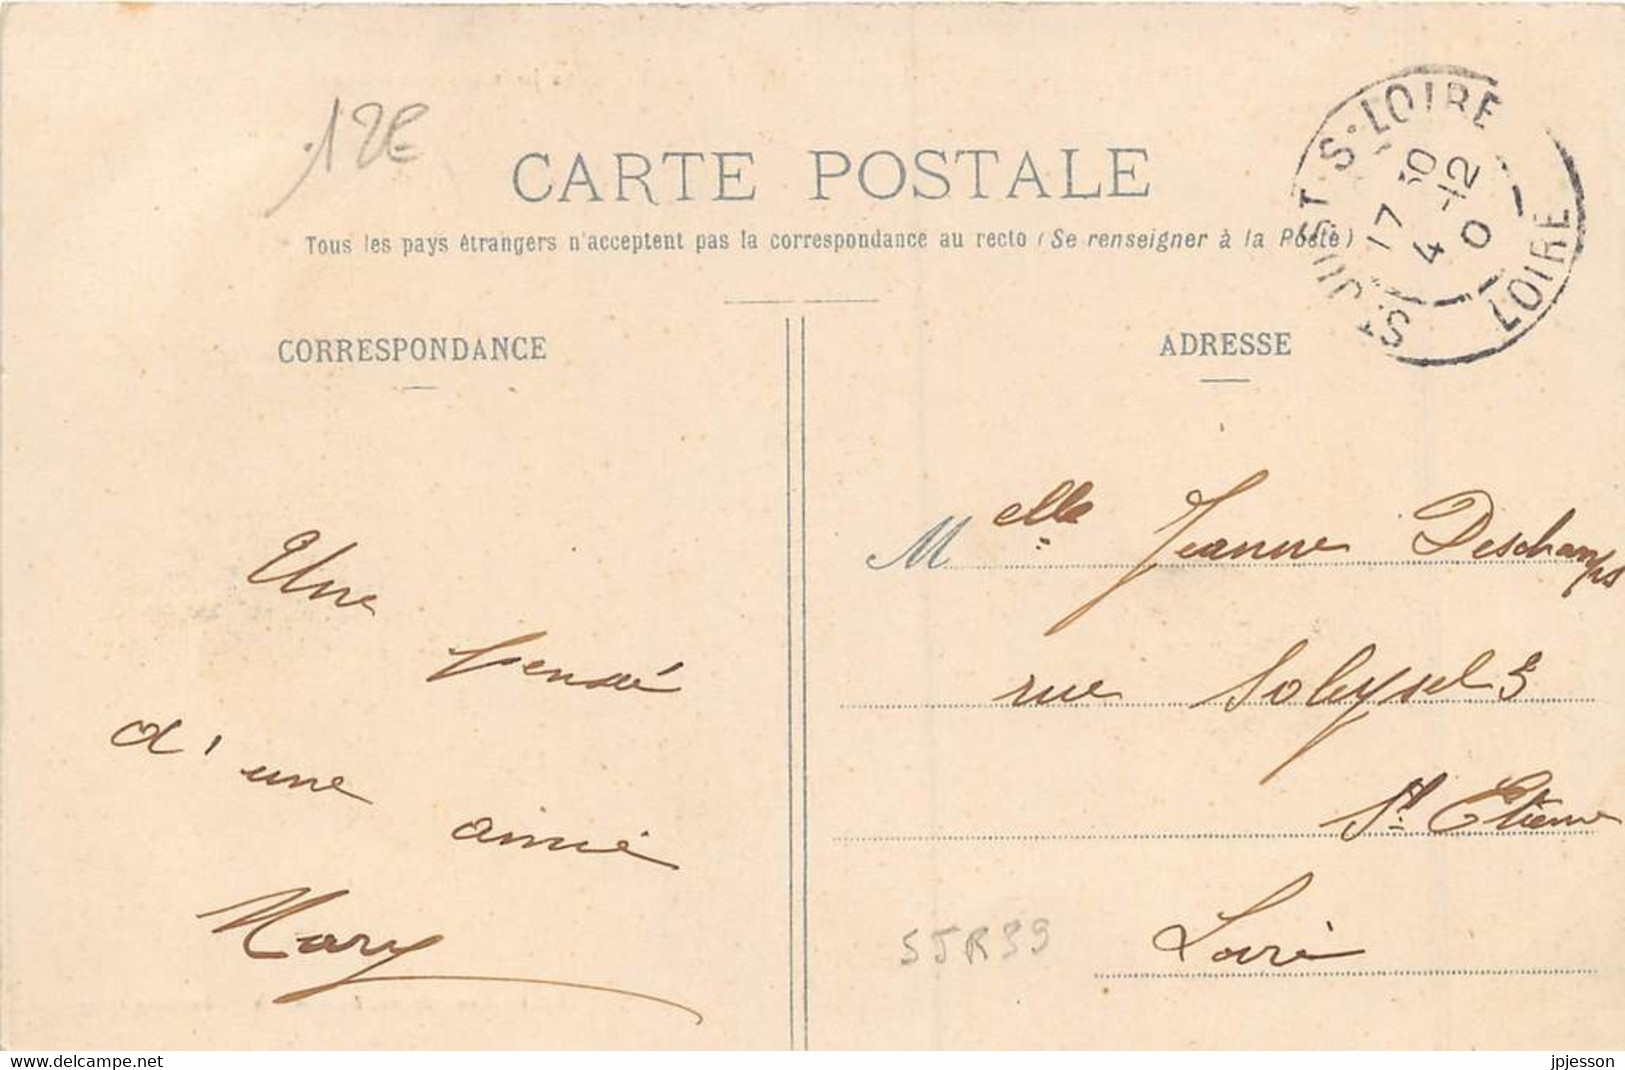 12€
CARTE POSTALE
Tous les pays étrangers n'acceptent pas la correspondance au recto (Se renseigner à la Poste)
ST JUST S. LOIRE
17 30
4 -12
0
LOIRE
CORRESPONDANCE
ADRESSE
Une
pensé
d'une
amie
Mary
Melle Jeanne Deschamps
rue Soleysel 3
St Etienne
Loire
SJR39
delcampe.net
jpjesson